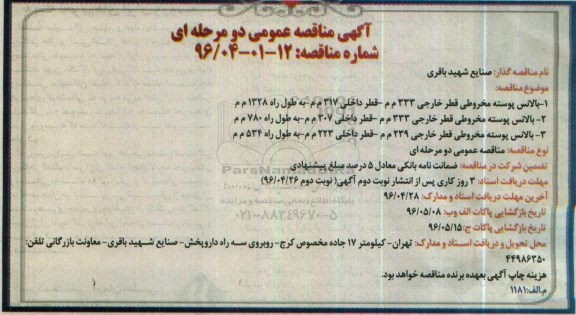 آگهی مناقصه عمومی دو مرحله ای
شماره مناقصه: ۱۲-۰۱-۹۶/۰۴
نام مناقصه گذار: صنایع شهید باقری
موضوع مناقصه:
۱-بالانس پوسته مخروطی قطر خارجی ۳۳۳ م م -قطر داخلی ۳۱۷ م م -به طول راه ۱۳۲۸ م م
۲- بالانس پوسته مخروطی قطر خارجی ۳۳۳ م م -قطر داخلی ۳۰۷ م م -به طول راه ۷۸۰ م م
۳- بالانس پوسته مخروطی قطر خارجی ۲۳۹ م م -قطر داخلی ۲۲۳ م م -به طول راه ۵۳۴ م م
نوع مناقصه: مناقصه عمومی دو مرحله ای
تضمین شرکت در مناقصه: ضمانت نامه بانکی معادل ۵ درصد مبلغ پیشنهادی
مهلت دریافت اسناد: ۳ روز کاری پس از انتشار نوبت دوم آگهی( نوبت دوم ۹۶/۰۴/۲۶)
آخرین مهلت دریافت اسناد و مدارک: ۹۶/۰۴/۲۸
تاریخ بازگشایی پاکات الف وب: ۹۶/۰۵/۰۸
تاریخ بازگشایی پاکات ج: ۹۶/۰۵/۱۵
محل تحویل و دریافت اسناد و مدارک: تهران- کیلومتر ۱۷ جاده مخصوص کرج- روبروی سه راه داروپخش- صنایع شهید باقری- معاونت بازرگانی تلفن:
۴۴۹۸۶۳۵۰
هزینه چاپ آگهی بعهده برنده مناقصه خواهد بود.
م.الف:۱۱۸۱
پایگاه اطلاع رسانی مناقصه و مزایده
۰۲۱-۸۸۳۴۹۶۷۰-۵